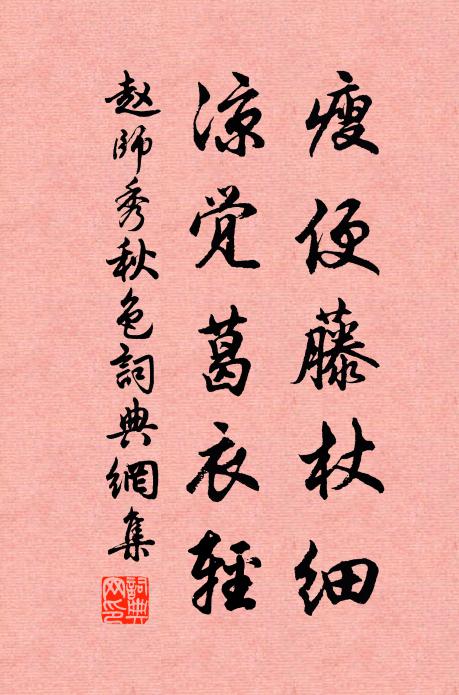 瘦便藤杖细
凉觉葛衣轻
赵师秀秋色詞典網集
詞典网印